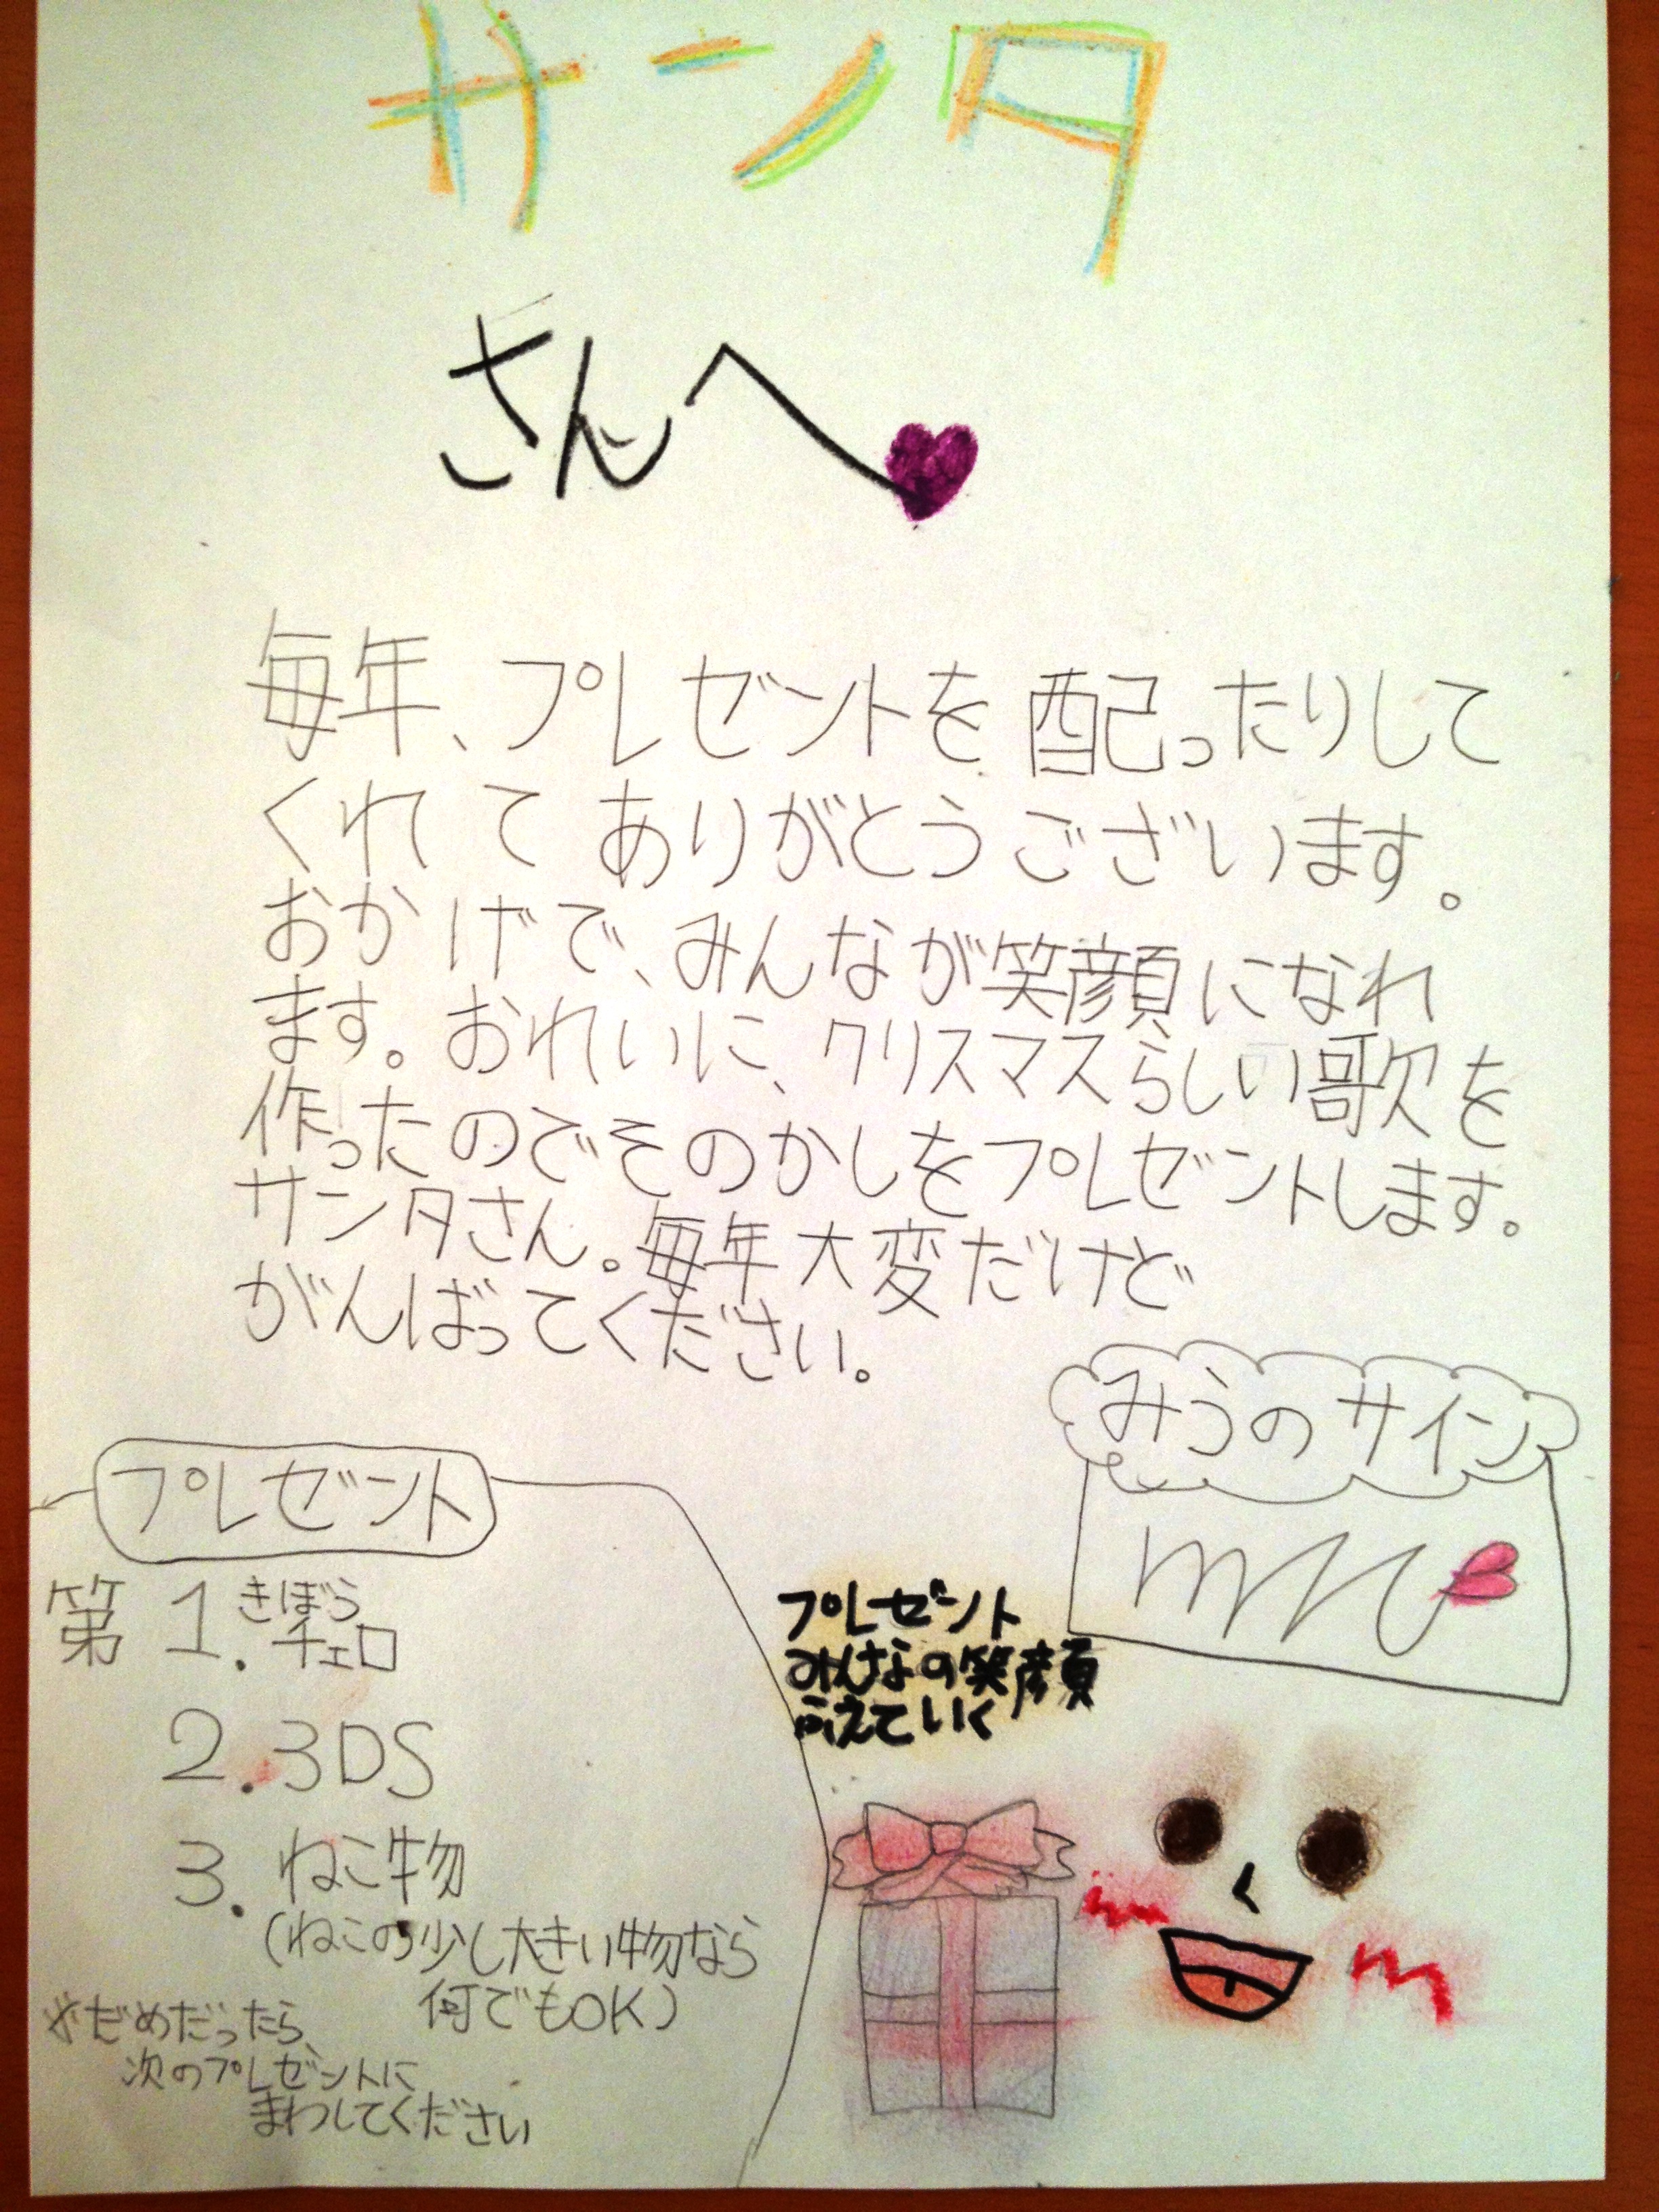 サンタ
さんへ
毎年、プレゼントを配ったりして
くれてありがとうございます。
おかげで、みんなが笑顔になれ
ます。おれいに、クリスマスらしい歌を
作ったのでそのかしをプレゼントします。
サンタさん。毎年大変だけど
がんばってください。
みうのサイン
プレゼント
第1.きぼう
チェロ
2.3DS
3.ねこ物
(ねこの少し大きい物なら
何でもOK)
※だめだったら、
次のプレゼントに
まわしてください
プレゼント
みんなの笑顔
えていく